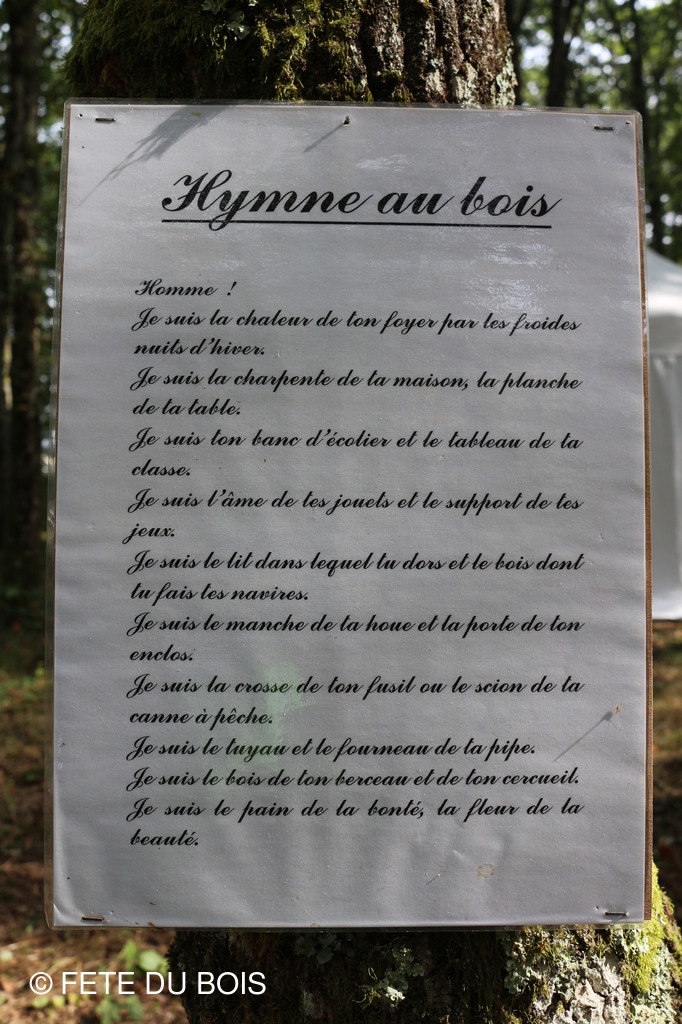 Hymne au bois
Homme !
Je suis la chaleur de ton foyer par les froides
nuits d'hiver.
Je suis la charpente de ta maison, la planche
de ta table.
Je suis ton banc d'écolier et le tableau de ta
classe.
Je suis l'âme de tes jouets et le support de tes
jeux.
Je suis le lit dans lequel tu dors et le bois dont
tu fais tes navires.
Je suis le manche de ta houe et la porte de ton
enclos.
Je suis la crosse de ton fusil ou le scion de ta
canne à pêche.
Je suis le tuyau et le fourneau de ta pipe.
Je suis le bois de ton berceau et de ton cercueil.
Je suis le pain de la bonté, la fleur de la
beauté.
© FETE DU BOIS